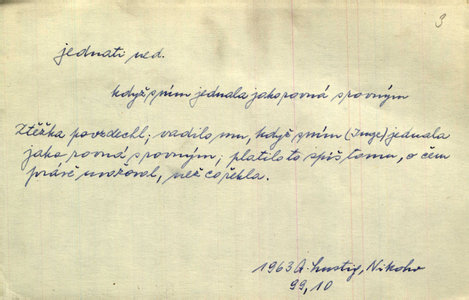 3
jednati ned.
když s ním jednala jako rovná s rovným
Ztěžka povzdechl; vadilo mu, když s ním (Inge) jednala
jako rovná s rovným; platilo to spíš tomu, o čem
právě uvažoval, než co řekla.
1963 A. Lustig, Nikoho
99, 10